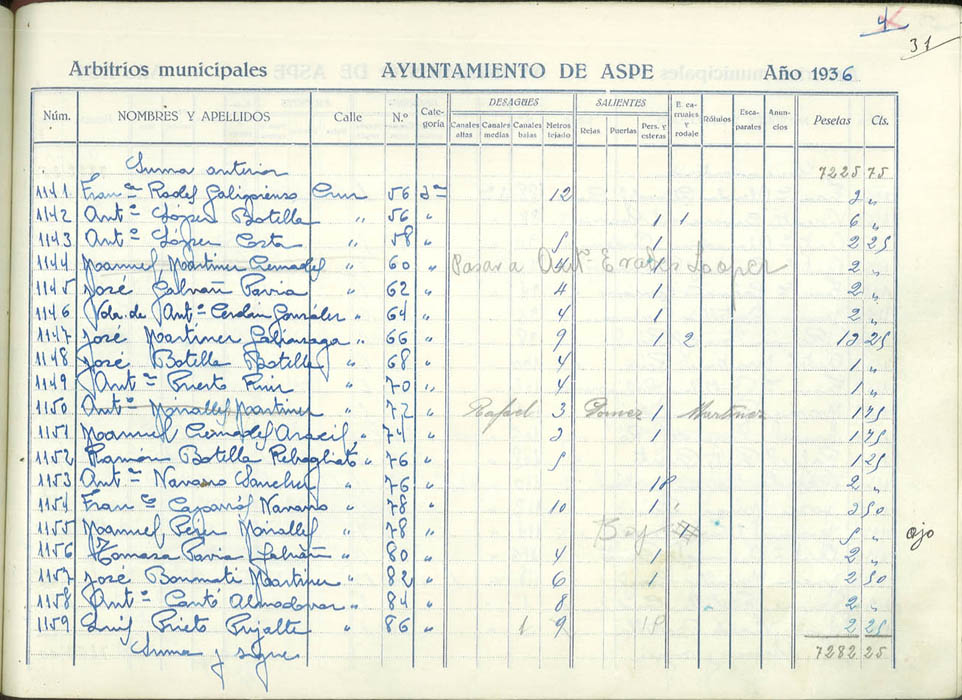 4
31
Arbitrios municipales AYUNTAMIENTO DE ASPE Año 1936
Núm. NOMBRES Y APELLIDOS Calle N.º Categoría DESAGUES Canales altas Canales medias Canales bajas Metros tejado SALIENTES Rejas Puertas Pers. y esteras E. carruajes y rodaje Rótulos Escaparates Anuncios Pesetas Cts.
Suma anterior 7225 75
1141 Franco Galipienso Cruz 56 2ª 12 3 "
1142 Antº López Botella " 56 " 1 1 6 "
1143 Antº López Costa " 58 " 5 1 2 25
1144 Manuel Martinez Cremades " 60 " Pasar a Antº 4 1 2 "
1145 José Galvañ Pavia " 62 " 4 1 2 "
1146 Vda. de Antº Cerdán González " 64 " 4 1 2 "
1147 José Martínez " 66 " 9 1 2 13 25
1148 José Botella Botella " 68 " 4 1 "
1149 Antº Puerto " 70 " 4 1 "
1150 Antº Miralles Martinez " 72 " Rafael 3 Gomez 1 Martinez 1 75
1151 Manuel Cremades Aracil " 74 " 3 1 1 75
1152 Ramón Botella " 76 " 5 1 25
1153 Antº Navarro Sanchez " 76 " 1P 2 "
1154 Franco Caparrós Navarro " 78 " 10 1 2 50
1155 Manuel Perez Miralles " 78 " Baja 5 " ojo
1156 Tomasa Pavia Galvañ " 80 " 4 1 2 "
1157 José Bonmati Martinez " 82 " 6 1 2 50
1158 Antº Cantó Almodovar " 84 " 8 2 "
1159 Luis Prieto Pujalte " 86 " 1 9 1P 2 25
Suma y sigue 7282 25